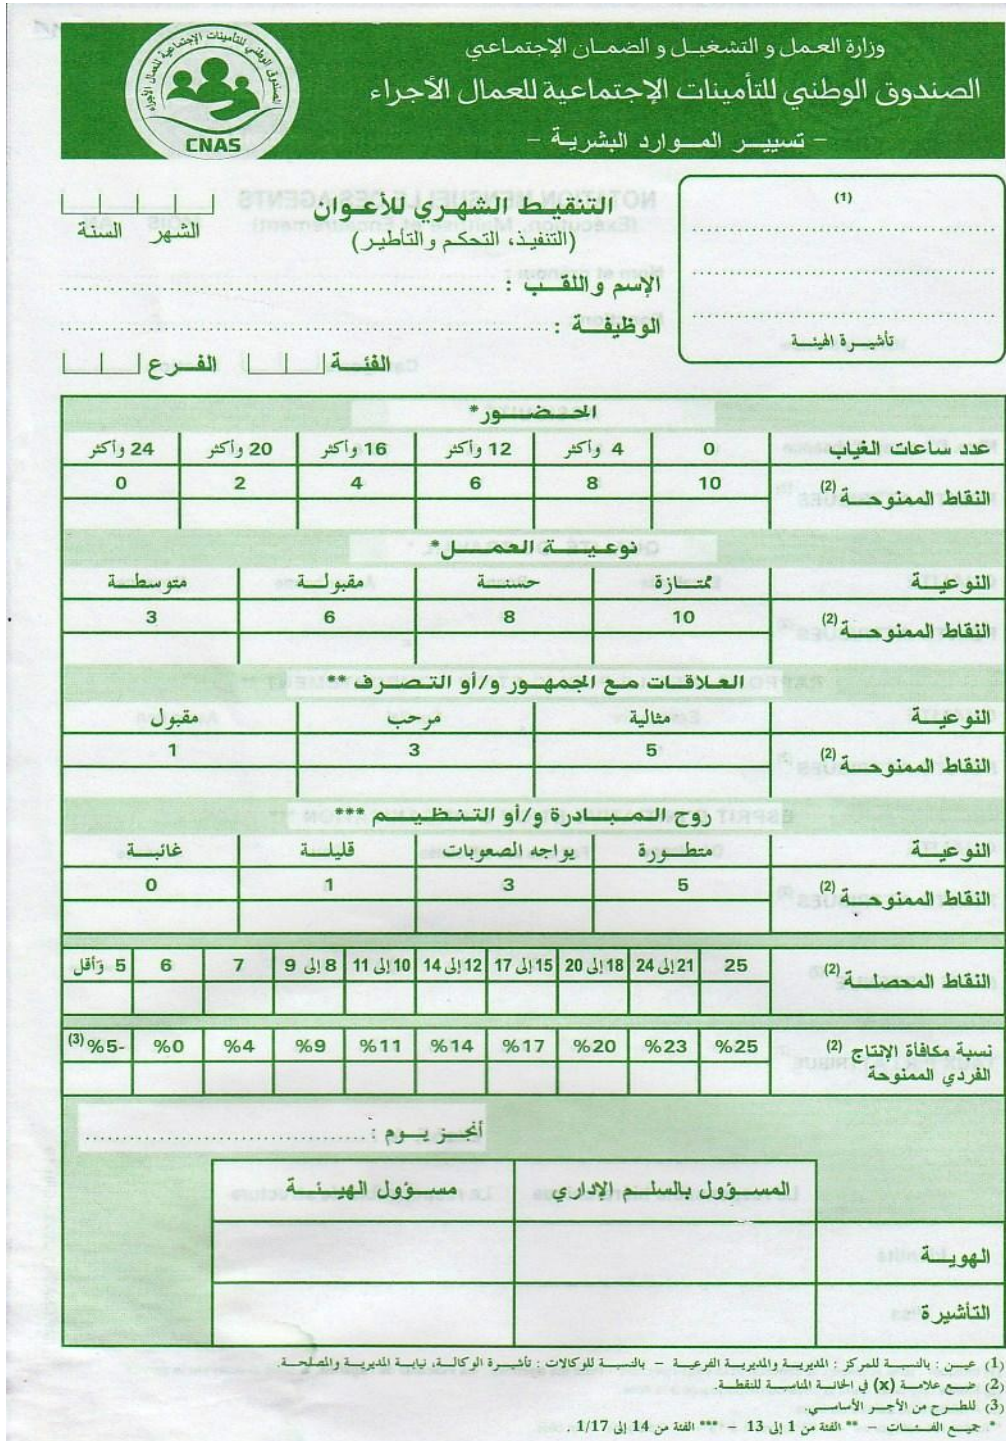 وزارة العمل و التشغيل و الضمان الإجتماعي
الصندوق الوطني للتأمينات الإجتماعية للعمال الأجراء
- تسيير الموارد البشرية -
الصندوق الوطني للتأمينات الإجتماعية للعمال الأجراء
CNAS
(1)
تأشيرة الهيئة
التنقيط الشهري للأعوان
(التنفيذ، التحكم والتاطير)
الشهر السنة
الإسم واللقب :
الوظيفة :
الفئة الفرع
الحضور*
عدد ساعات الغياب 0 4 وأكثر 12 وأكثر 16 وأكثر 20 وأكثر 24 وأكثر
النقاط الممنوحة (2) 10 8 6 4 2 0
نوعية العمل*
النوعية ممتازة حسنة مقبولة متوسطة
النقاط الممنوحة (2) 10 8 6 3
العلاقات مع الجمهور و/أو التصرف **
النوعية مثالية مرحب مقبول
النقاط الممنوحة (2) 5 3 1
روح المبادرة و/أو التنظيم ***
النوعية متطورة يواجه الصعوبات قليلة غائبة
النقاط الممنوحة (2) 5 3 1 0
النقاط المحصلة (2) 25 21 إلى 24 18 إلى 20 15 إلى 17 12 إلى 14 10 إلى 11 8 إلى 9 7 6 5 وأقل
نسبة مكافأة الإنتاج (2) %25 %23 %20 %17 %14 %11 %9 %4 %0 %5- (3)
الفردي الممنوحة
أنجز يوم :
المسؤول بالسلم الإداري مسؤول الهيئة
الهوية
التأشيرة
(1) عين : بالنسبة للمركز : المديرية والمديرية الفرعية – بالنسبة للوكالات : تأشيرة الوكالة، نيابة المديرية والمصلحة.
(2) ضع علامة (x) في الخانة المناسبة للنقطة.
(3) للطرح من الأجر الأساسي.
* جميع الفئات – ** الفئة من 1 إلى 13 – *** الفئة من 14 إلى 1/17 .